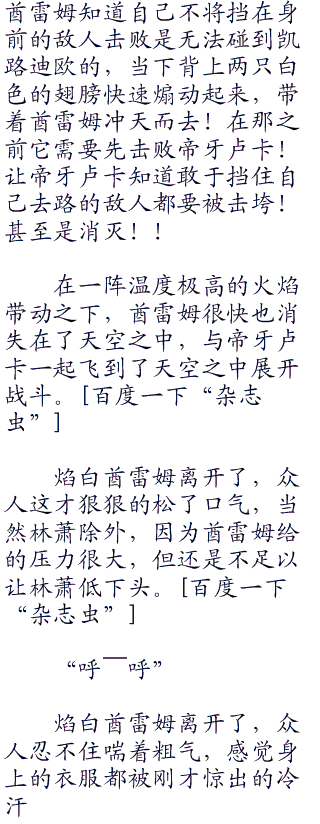 酋雷姆知道自己不将挡在身
前的敌人击败是无法碰到凯
路迪欧的，当下背上两只白
色的翅膀快速煽动起来，带
着酋雷姆冲天而去！在那之
前它需要先击败帝牙卢卡！
让帝牙卢卡知道敢于挡住自
己去路的敌人都要被击垮！
甚至是消灭！！
在一阵温度极高的火焰
带动之下，酋雷姆很快也消
失在了天空之中，与帝牙卢
卡一起飞到了天空之中展开
战斗。[百度一下“杂志
虫”]
焰白酋雷姆离开了，众
人这才狠狠的松了口气，当
然林萧除外，因为酋雷姆给
的压力很大，但还是不足以
让林萧低下头。[百度一下
“杂志虫”]
“呼—呼”
焰白酋雷姆离开了，众
人忍不住喘着粗气，感觉身
上的衣服都被刚才惊出的冷
汗